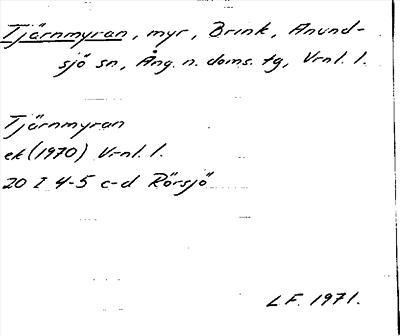 Tjärnmyran, myr, Brink, Anund-
sjö sn, Ång. n. doms. tg, Vrnl. l.
Tjärnmyran
ek (1970) Vrnl. l.
20 I 4-5 c-d Rörsjö
LF. 1971.